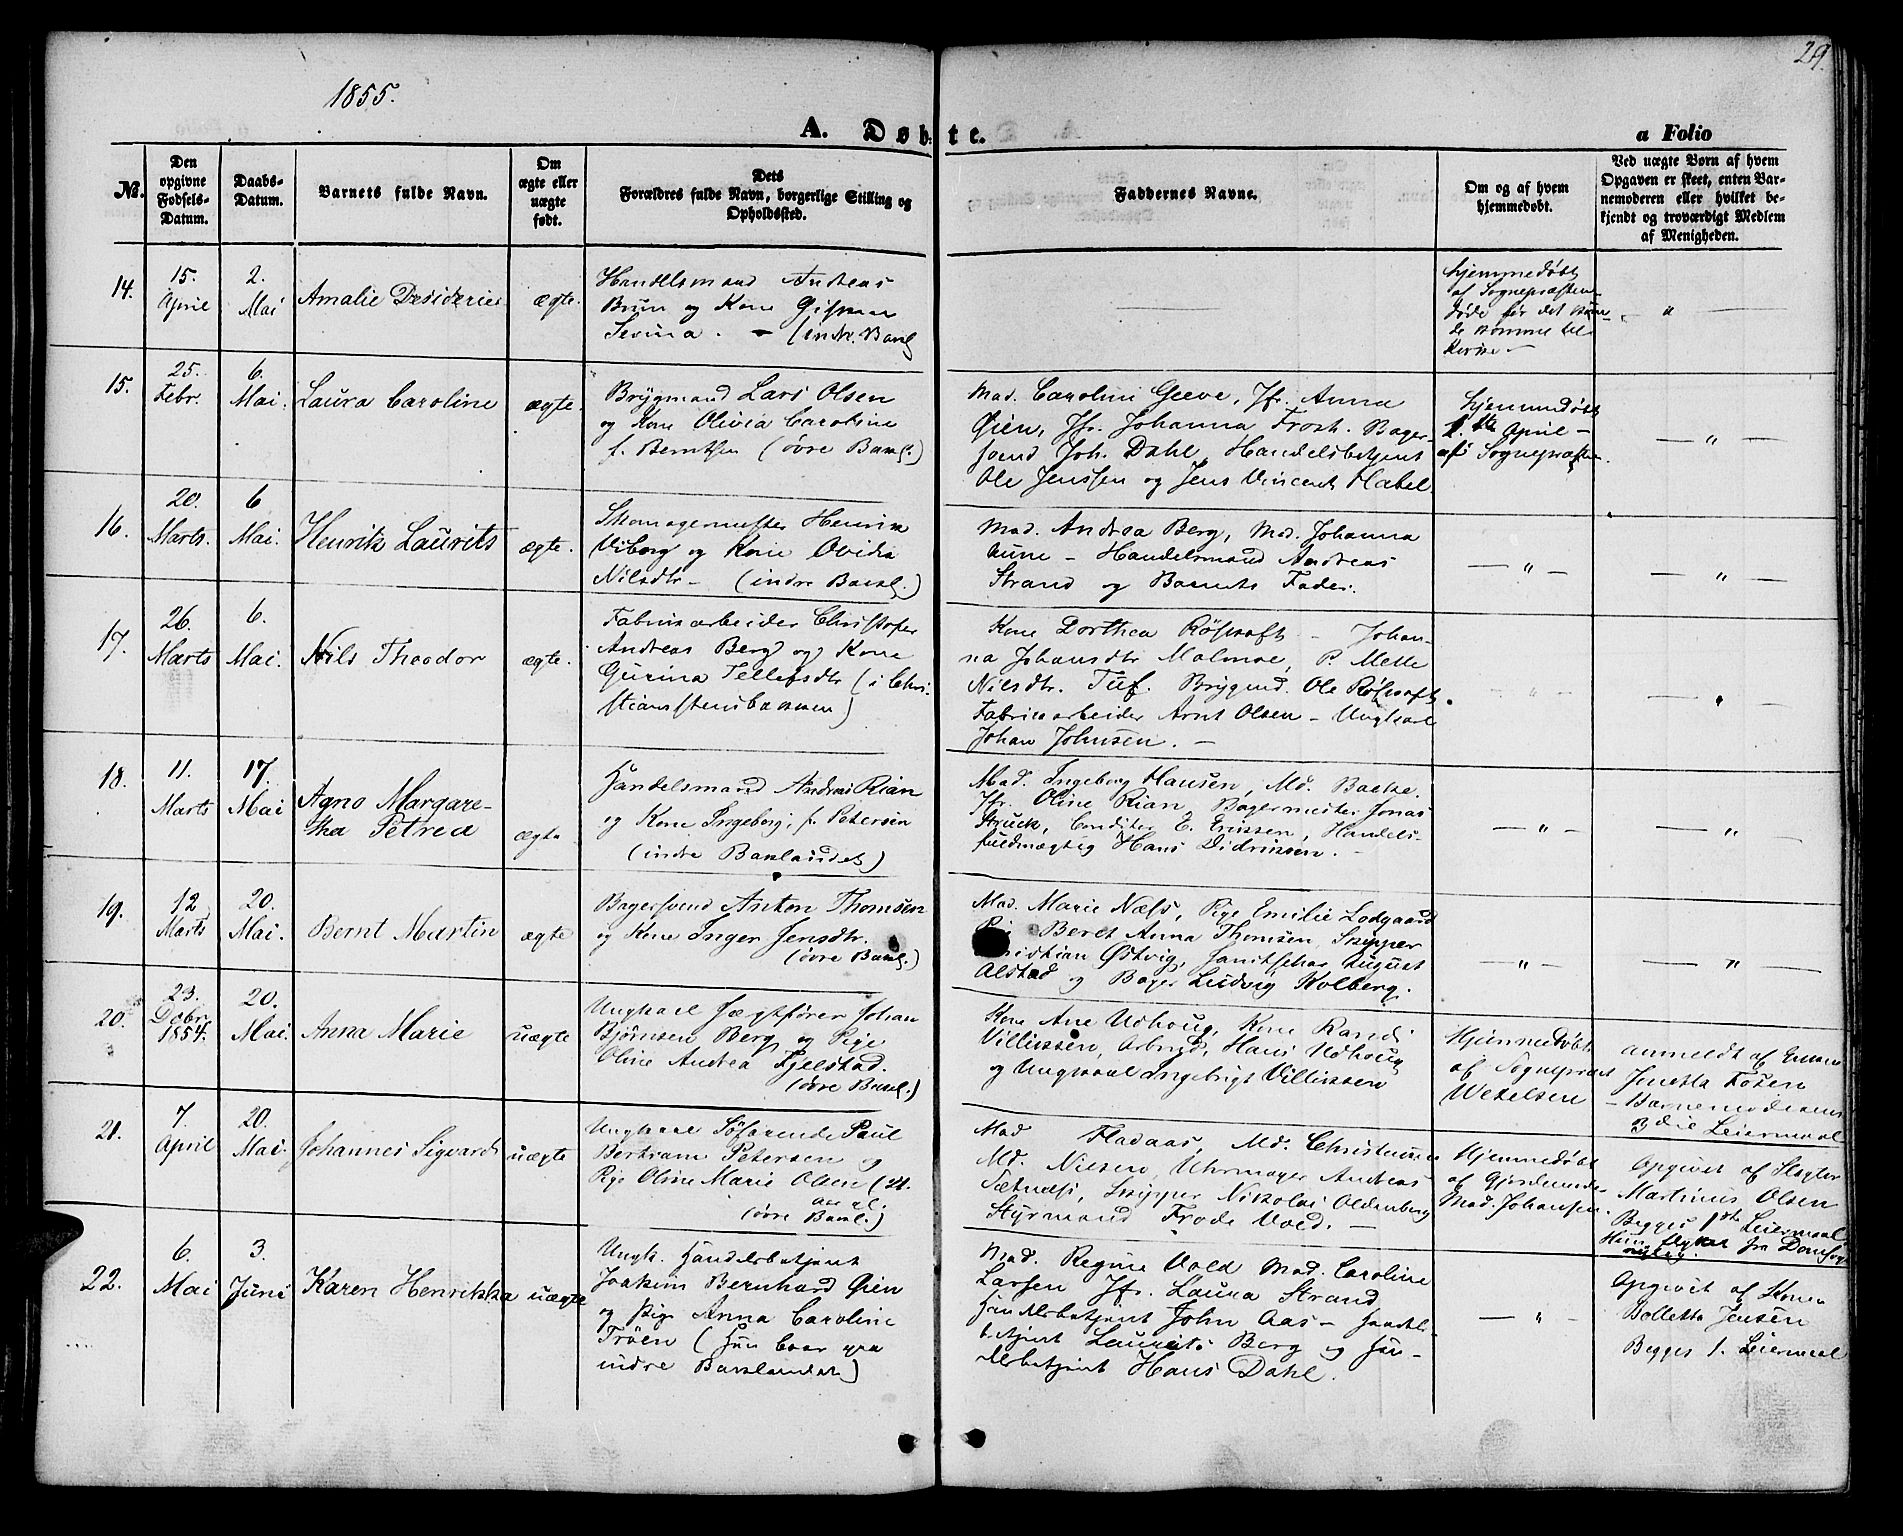 29.
1855.
A. Døbte.
a Folio
No.
Den
opgivne
Fødsels-
Datum.
Daabs-
Datum.
Barnets fulde Navn.
Om
ægte eller
uægte
født.
Dets
Forældres fulde Navn, borgerlige Stilling og
Opholdssted.
Faddernes Navne.
Om og af hvem
hjemmedøbt.
Ved uægte Børn af hvem
Opgaven er skeet, enten Bar-
nemoderen eller hvilket be-
kjendt og troværdigt Medlem
af Menigheden.
14.
15.
April
2.
Mai
Amalie Desideria
ægte.
Handelsmand Andreas
Brun og Kone
Sevina. - (indre. Bakl
hjemmedøbt
af Sognepræsten
døde før det kun-
de komme til
Kirke -
"
15.
25.
Febr.
6.
Mai.
Laura Caroline
ægte.
Brygmand Lars Olsen
og Kone Olivia Caroline
f. Berntsen (øvre Bakl.)
Mad. Caroline Greve, Jfr. Anna
Øien, Jfr. Johanna Frost. Bager-
svend Joh. Dahl, Handelsbetjent
Ole Jenssen og Jens Vincent Habel.
hjemmedøbt
1ste April -
af Sognepræsten.
— " —
16.
20.
Marts.
6
Mai.
Henrik Laurits
ægte.
Skomagermester Henrik
Viborg og Kone Ovidia
Nilsdtr - (indre Bakl.)
Mad. Andrea Berg, Mad. Johanna
Aune - Handelsmand Andreas
Strand og Barnets Fader.
— " —
— " —
17.
26.
Marts
6.
Mai.
Nils Theodor
ægte.
Fabrikarbeider Christofer
Andreas Berg og Kone
Gurina Tellefsdtr (i Chri-
stianstensbakken)
Kone Dorthea Røskaft - Johan-
na Johansdtr Malmoe, P. Mette
Nilsdtr. Tuf. Brygmd. Ole Røskaft
Fabrikarbeider Arnt Olsen - Ungkarl
Johan Johnsen. -
— " —
— " —
18.
11.
Marts
17.
Mai
Agno Margare-
tha Petrea
ægte
Handelsmand Andreas Rian
og Kone Ingeborg, f. Petersen
(indre Baklandet)
Mad. Ingeborg Hansen, Md. Bakke.
Jfr. Oline Rian, Bagermester Jonas
Struck, Conditor E. Erikssen, Handels-
fuldmægtig Hans Didrikssen. -
— " —
— " —
19.
12
Marts
20.
Mai.
Bernt Martin
ægte
Bagersvend Anton Thomsen
og Kone Inger Jensdtr.
(øvre Bakl.)
Mad. Marie Næss, Pige Emilie Lodgaard
Beret Anna Thomsen, Skipper
Christian Østvig, Janitschar August
Alstad og Bager Ludvig Kolberg.
— " —
— " —
20.
23.
Decbr.
1854.
20.
Mai.
Anna Marie
uægte
Ungkarl Jægtfører Johan
Bjørnsen Berg og Pige
Oline Andrea Fjelstad.
(øvre Bakl.)
Kone Ane Udhoug, Kone Randi
Villiksen, Arbmd. Hans Udhoug
og Ungkaal Ingebrigt Villikssen
Hjemmedøbt
af Sognepræst
Wexelsen
anmeldt af Emma
Jenetta Rosen
- Barnemoderens
3die Leiermaal
21.
7.
April
20.
Mai.
Johannes Sigvard
uægte
Ungkarl Søfarende Paul
Bertram Petersen og
Pige Oline Marie Olsen (21.
Aar gl.
(øvre Bakl.)
Mad Fladaas, Md. Christensen
Md. Nilsen, Uhrmager Andreas
Sætnæs, Skipper Nikolai Oldenborg
Styrmand Frode Vold. -
Hjemmedøbt
af Gjordemoder
Mad. Johansen.
Opgivet af Slagter
Martinus Olsen
Begges 1ste Leiermaal
Hun flyttet fra Domsogn
22.
6.
Mai
3.
Juni
Karen Henrikka
uægte
Ungk. Handelsbetjent
Joakim Bernhard Øien
og Pige Anna Caroline
Trøen (Hun boer paa
indre Baklandet)
Mad. Regine Vold Mad. Caroline
Larsen Jfr. Laura Strand
Handelsbetjent John Aas - Handels-
betjent Laurits Berg og Han-
delsbetjent Hans Dahl.
— " —
Opgivet af Kone
Bolletta Jensen
Begges 1. Leiermaal